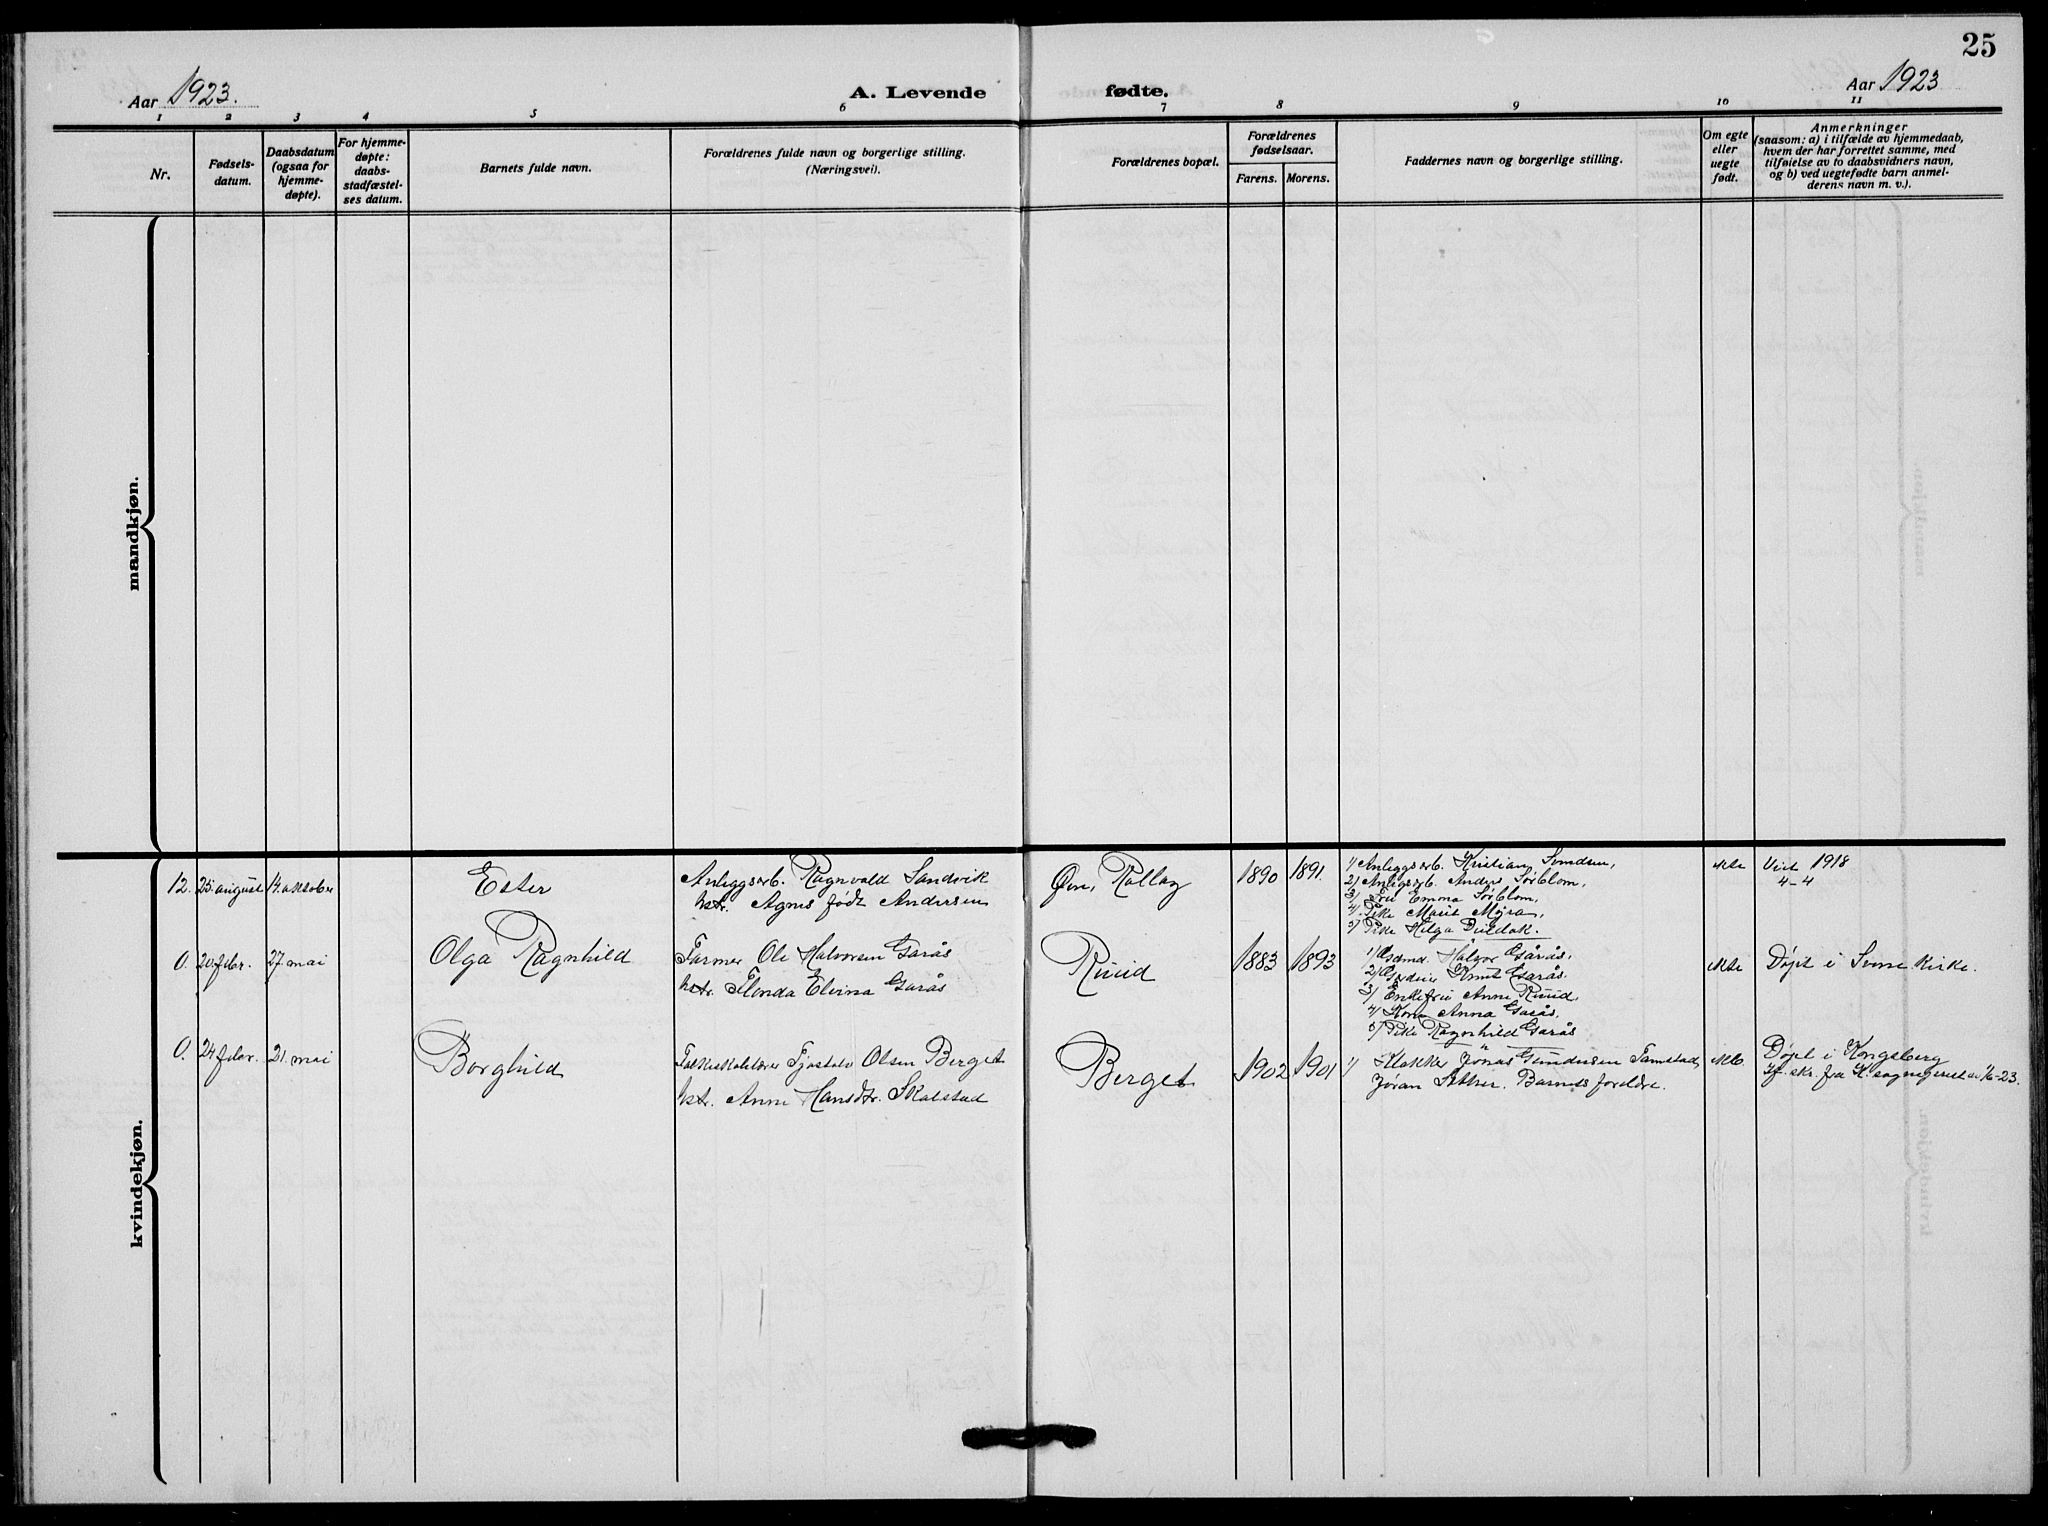 25
Aar 1923.
A. Levende
fødte.
Aar 1923
1 2 3 4 5 6 7 8 9 10 11
Nr.
Fødsels-
datum.
Daabsdatum
(ogsaa for
hjemme-
døpte).
For hjemme-
døpte:
daabs-
stadfæstel-
ses datum.
Barnets fulde navn.
Forældrenes fulde navn og borgerlige stilling.
(Næringsvei).
Forældrenes bopæl.
Forældrenes
fødselsaar.
Farens. Morens.
Faddernes navn og borgerlige stilling.
Om egte
eller
uegte
født.
Anmerkninger
(saasom: a) i tilfælde av hjemmedaab,
hvem der har forrettet samme, med
tilføielse av to daabsvidners navn,
og b) ved uegtefødte barn anmel-
derens navn m. v.).
mandkjøn.
kvindekjøn.
12. 25. august 14. oktober
Ester
Anleggsarb. Ragnvald Sandvik
hstr. Agnes født Andersen
Øvr. Rollag
1890 1891.
1) Anleggsarb. Kristian Svendsen,
2) Anlegsarb. Anders Sørblom,
3) Fru Emma Sørblom,
4) Pike Marit Myra,
5) Pike Helga
ekte
Viet 1918
4-4
0. 20. febr. 27. mai
Olga Ragnhild
Farmer Ole Halvorsen Garås
hstr. Elvina Garås
Ruud
1883 1893
1) Gårdmd. Halvor Garås,
2) Knut Garås.
3) Enkefru Anne Ruud,
4) Kone Anna Garås,
5) Pike Ragnhild Garås
ekte
Døpt i Svene kirke.
0. 24 febr. 21. mai
Borghild
Folkeskolelærer Tjøstolv Olsen Berget
hstr. Anne Hansdtr. Skalstad
Berget
1902 1901
1) Klokker Jonas Gundersen Tamstad,
Jøran Sether. Barnets foreldre.
ekte
Døpt i Kongsberg
Jf. skr. fra K. sogneprest av 1/6-23.